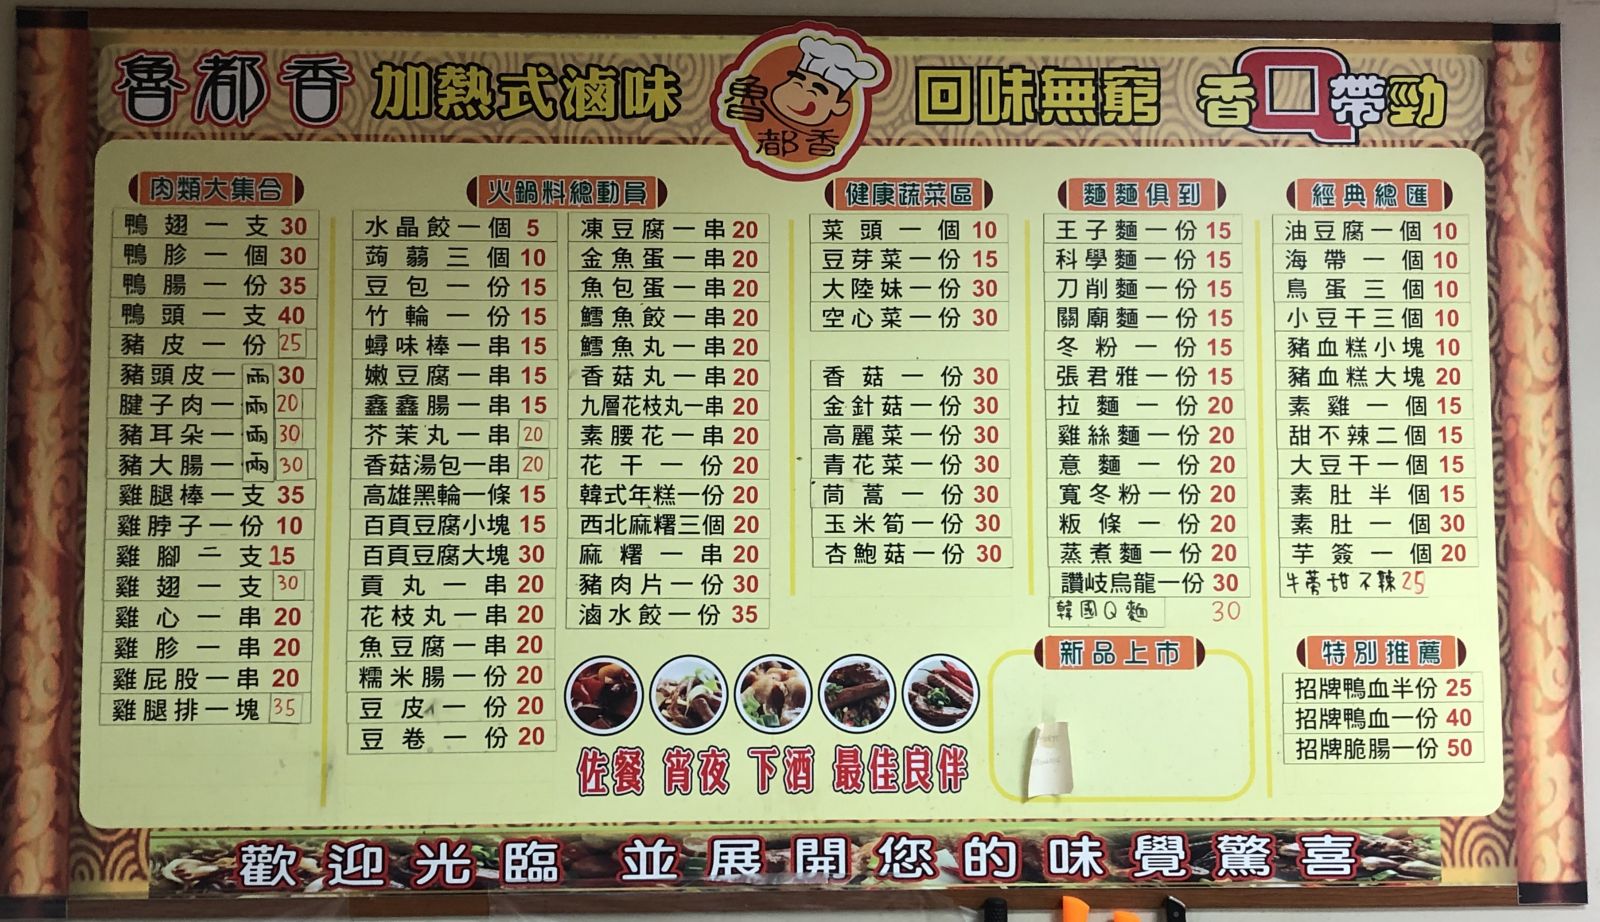 魯都香 加熱式滷味
魯都香
回味無窮 香Q帶勁
肉類大集合
鴨翅一支 30
鴨胗一個 30
鴨腸一份 35
鴨頭一支 40
豬皮一份 25
豬頭皮一兩 30
腱子肉一兩 20
豬耳朵一兩 30
豬大腸一兩 30
雞腿棒一支 35
雞脖子一份 10
雞腳二支 15
雞翅一支 30
雞心一串 20
雞胗一串 20
雞屁股一串 20
雞腿排一塊 35
火鍋料總動員
水晶餃一個 5
蒟蒻三個 10
豆包一份 15
竹輪一份 15
蟳味棒一串 15
嫩豆腐一串 15
鑫鑫腸一串 15
芥茉丸一串 20
香菇湯包一串 20
高雄黑輪一條 15
百頁豆腐小塊 15
百頁豆腐大塊 30
貢丸一串 20
花枝丸一串 20
魚豆腐一串 20
糯米腸一份 20
豆皮一份 20
豆卷一份 20
凍豆腐一串 20
金魚蛋一串 20
魚包蛋一串 20
鱈魚餃一串 20
鱈魚丸一串 20
香菇丸一串 20
九層花枝丸一串 20
素腰花一串 20
花干一份 20
韓式年糕一份 20
西北麻糬三個 20
麻糬一串 20
豬肉片一份 30
滷水餃一份 35
健康蔬菜區
菜頭一個 10
豆芽菜一份 15
大陸妹一份 30
空心菜一份 30
香菇一份 30
金針菇一份 30
高麗菜一份 30
青花菜一份 30
茼蒿一份 30
玉米筍一份 30
杏鮑菇一份 30
麵麵俱到
王子麵一份 15
科學麵一份 15
刀削麵一份 15
關廟麵一份 15
冬粉一份 15
張君雅一份 15
拉麵一份 20
雞絲麵一份 20
意麵一份 20
寬冬粉一份 20
粄條一份 20
蒸煮麵一份 20
讚岐烏龍一份 30
韓國Q麵 30
新品上市
經典總匯
油豆腐一個 10
海帶一個 10
鳥蛋三個 10
小豆干三個 10
豬血糕小塊 10
豬血糕大塊 20
素雞一個 15
甜不辣二個 15
大豆干一個 15
素肚半個 15
素肚一個 30
芋簽一個 20
牛蒡甜不辣 25
特別推薦
招牌鴨血半份 25
招牌鴨血一份 40
招牌脆腸一份 50
佐餐 宵夜 下酒 最佳良伴
歡迎光臨 並展開您的味覺驚喜